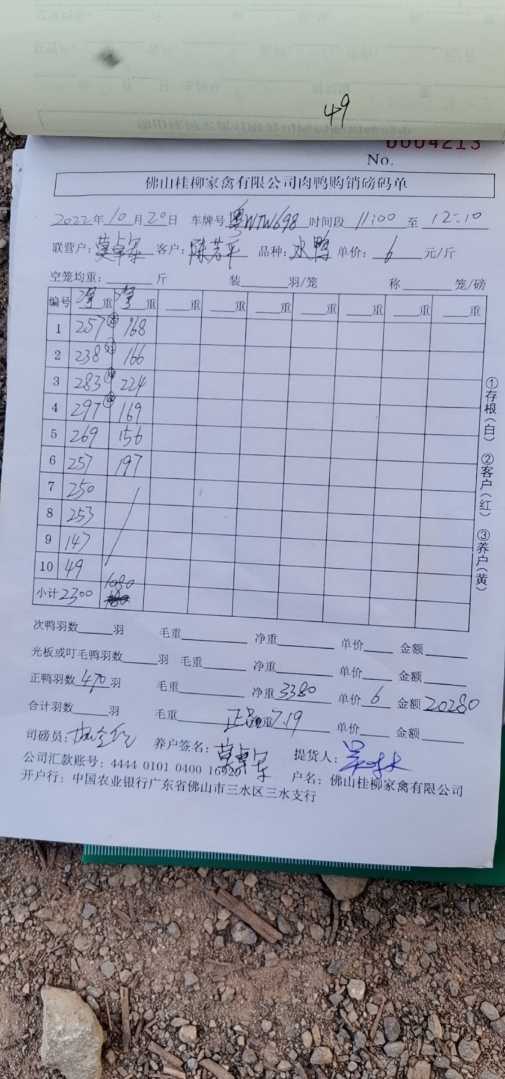 49
0004213
No.
佛山桂柳家禽有限公司肉鸭购销磅码单
2022年10月20日 车牌号粤WTW698 时间段 11:00 至 12:10
联营户: 客户: 品种:水鸭 单价: 6 元/斤
空笼均重: 斤 装 羽/笼 称 笼/磅
编号 净重 净重 重 重 重 重 重 重
1 257 168
2 238 166
3 283 224
4 297 169
5 269 156
6 257 197
7 250
8 253
9 147
10 49
小计 2300 1080
次鸭羽数 羽 毛重 净重 单价 金额
光板或叮毛鸭羽数 羽 毛重 净重 单价 金额
正鸭羽数 470 羽 毛重 净重 3380 单价 6 金额 20280
合计羽数 羽 毛重 正品 7.19 单价 金额
司磅员: 养户签名: 提货人:
公司汇款账号: 4444 0101 0400 户名: 佛山桂柳家禽有限公司
开户行: 中国农业银行广东省佛山市三水区三水支行
①存根(白) ②客户(红) ③养户(黄)